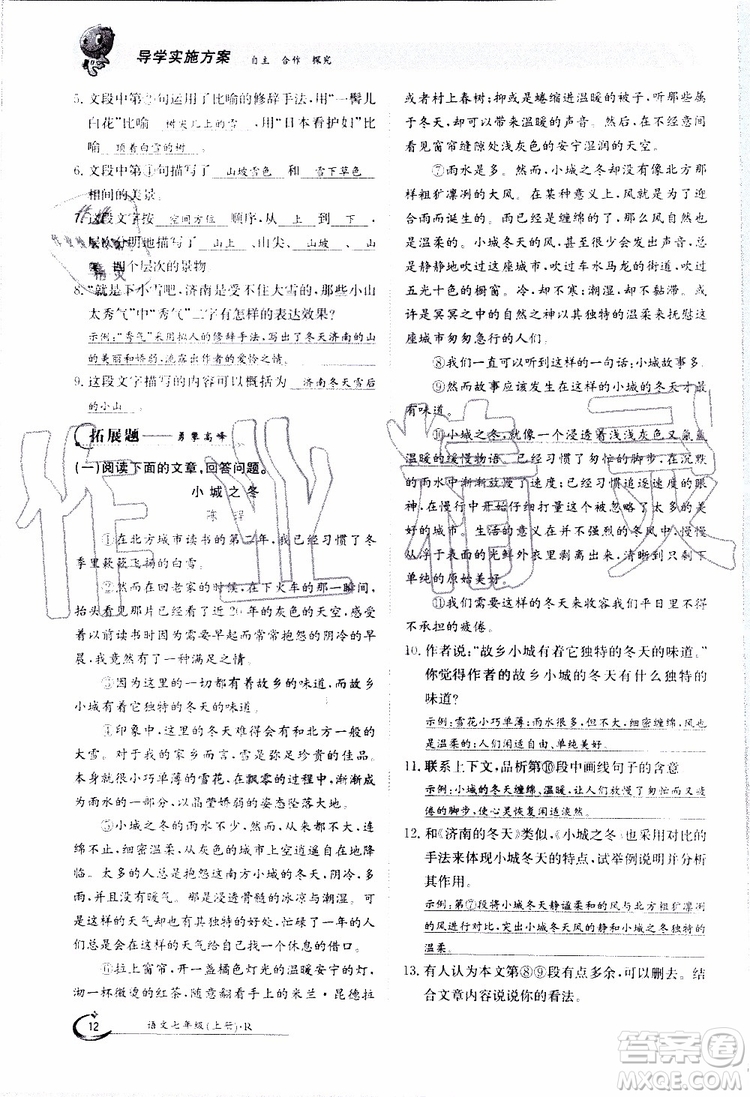 导学实施方案 自主 合作 探究
5. 文段中第②句运用了比喻的修辞手法,用“一髻儿
白花”比喻 树尖儿上的雪 ,用“日本看护妇”比
喻 顶着白雪的树 。
6. 文段中第①句描写了 山坡雪色 和 雪下草色
相间的美景。
7. 这段文字按 空间方位 顺序,从 上 到 下 ,
层次分明地描写了 山上 、山尖、 山坡 、 山
四个层次的景物
8. “就是下小雪吧,济南是受不住大雪的,那些小山
太秀气”中“秀气”二字有怎样的表达效果?
示例:“秀气”采用拟人的修辞手法,写出了冬天济南的山
的美丽和娇弱,流露出作者的爱怜之情。
9. 这段文字描写的内容可以概括为 济南冬天雪后
的小山 。
拓展题——勇攀高峰
(一)阅读下面的文章,回答问题。
小城之冬
陈
①在北方城市读书的第二年,我已经习惯了冬
季里簌簌飞扬的白雪。
②然而在回老家的时候,在下火车的那一瞬间,
抬头看见那片已经看了近20年的灰色的天空,感觉
到以前读书时因为早起而常常抱怨的阴冷的早
晨,其中竟蕴含了一份久违的关爱之情。
③因为这里的一切都有故乡的味道,而故乡小
城有着它独特的冬天的味道。
④印象中,这里的冬天难得会有和北方一般的
大雪。雪对于我的家乡而言,简直弥足珍贵的佳品。
本身就很小巧单薄的雪花,在飘零的过程中,渐渐成
了冷雨中的一部分,以晶莹娇弱的姿态坠落大地。
⑤小城的冬天虽然雪少,但是雨水却不少,大
降临。太多的时候,灰色的城市上空逍遥着灰色的
云,雨声淅沥。浸透骨髓的冰凉与潮湿。可是习惯
了这样的天气却有其独特的好处,忙碌了一年的人
们总是会在这样的天气给自己找一个休息的借口。
⑥拉上窗帘,开一盏橘色灯光的温暖安宁的灯,
沏一杯微烫的红茶,随意翻看手上的米兰·昆德拉
或者村上春树;抑或是蜷缩进温暖的被子,听窗外属
于冬天的、有风和有雨的温暖的声音。从房间里能
看见窗帘缝隙处浅灰色的安宁与温馨。
⑦雨水是多了,然而小城的冬天却没有像北方那
样粗犷凛冽的大风。在某种意义上,风是为了迎
合雨而诞生的。雨已经是缠绵的了,风自然而然也
是温柔的。小城冬天的风,像是情人的耳语一般,总
是静静地吹过这座城市,吹动过车水马龙的街道和
五光十色的橱窗。冷,却不寒;潮湿,却不黏滞。或
许是冥冥之中它以其独特的温柔来抚慰过这
座城市匆匆前行的人们。
⑧我们一直可以不断听到的一句话:小城故事多。
⑨然而故事应该发生在小城的冬天才最
有味道。
⑩小城之冬,就像一个浸透着浅浅灰色与
温暖的缓慢物语。我已经习惯了冬天在沉默
的雨声中,人们闲适的脚步和日益迅速逃离的眼
神,人们终于开始仔细打量这个被忽略了太多的美
好的城市。生活的意义在异常的冬风中,慢慢
从浮于表面的光鲜外衣回归到了最本质的、最
单纯的原始美好。
⑪我们需要的,正是这样一个平日里不可
不承担的疲倦。
10. 作者说:“故乡小城有着它独特的冬天的味道。”
你觉得作者的故乡小城的冬天有什么独特的
味道?
示例:雪花小巧单薄;雨水很多,但不大,细密缠绵,风也
是温柔的;人们闲适自由、单纯美好。
11. 联系上下文,品析第⑩段中画线句子的含意
示例:小城的冬天缠绵、温暖,让人们放慢了忙碌或疲
倦的脚步,使心灵恢复闲适淡然。
12. 和《济南的冬天》类似,《小城之冬》也采用对比的
手法来体现小城冬天的特点,试举例说明并分析
其作用。
示例:第⑦段将小城冬天静谧柔和的风与北方粗犷凛冽
的风进行对比,突出了小城冬天的风的静谧柔和与独特的
温柔。
13. 有人认为本文第⑧⑨段有点多余,可以删去。结
合文章内容说说你的看法。
12 语文七年级(上册)·R
作业精灵
答案圈
MXQE.COM